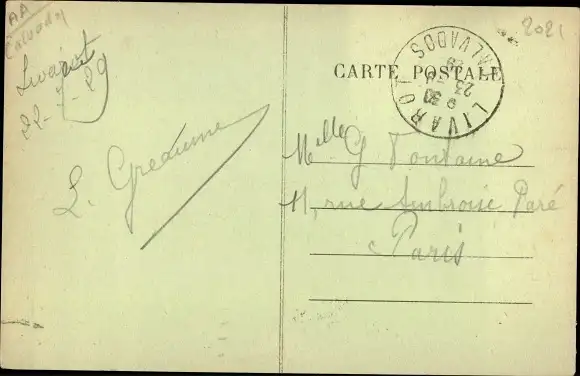 AA
Calvados
Livarot
22-7-29
L. Gredume
CARTE POSTALE
LIVAROT
CALVADOS
9 30
23
29
2021
Melle G Fontaine
11, rue Ambroise Paré
Paris